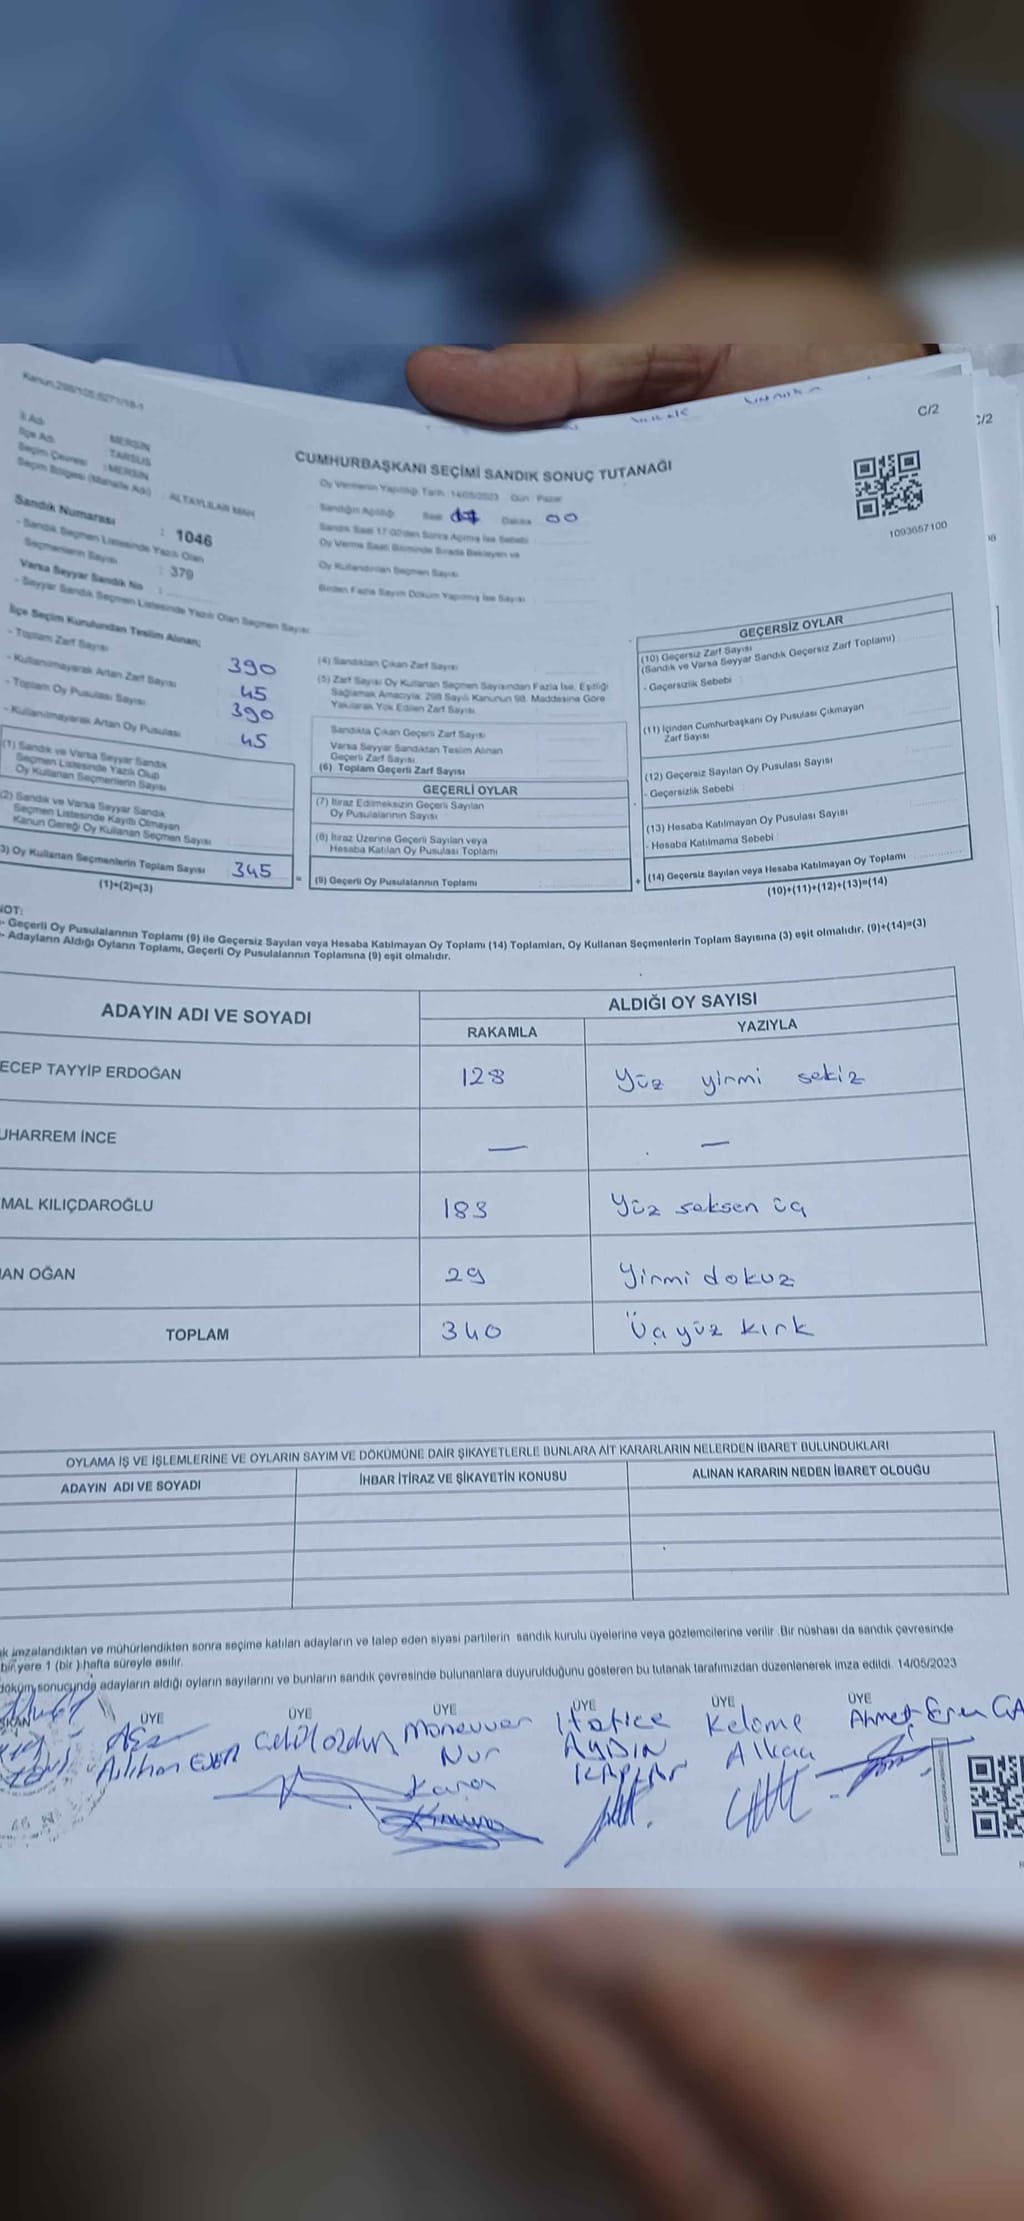 Kanun:298/105.6271/18-1
C/2
C/2
İl Adı : MERSİN
İlçe Adı : TARSUS
Seçim Çevresi : MERSİN
Seçim Bölgesi (Mahalle Adı) : ALTAYLILAR MAH
Sandık Numarası : 1046
- Sandık Seçmen Listesinde Yazılı Olan
Seçmenlerin Sayısı : 379
Varsa Seyyar Sandık No :
- Seyyar Sandık Seçmen Listesinde Yazılı Olan Seçmen Sayısı
CUMHURBAŞKANI SEÇİMİ SANDIK SONUÇ TUTANAĞI
Oy Vermenin Yapıldığı Tarih : 14/05/2023 Gün : Pazar
Sandığın Açıldığı Saat 17 Dakika 00
Sandık Saat 17:00'den Sonra Açılmış İse Sebebi
Oy Verme Saati Bitiminde Sırada Bekleyen ve
Oy Kullandırılan Seçmen Sayısı
Birden Fazla Sayım Döküm Yapılmış İse Sayısı
1093657100
İlçe Seçim Kurulundan Teslim Alınan;
- Toplam Zarf Sayısı 390
- Kullanılmayarak Artan Zarf Sayısı 45
- Toplam Oy Pusulası Sayısı 390
- Kullanılmayarak Artan Oy Pusulası 45
(1) Sandık ve Varsa Seyyar Sandık
Seçmen Listesinde Yazılı Olup
Oy Kullanan Seçmenlerin Sayısı
(2) Sandık ve Varsa Seyyar Sandık
Seçmen Listesinde Kayıtlı Olmayan
Kanun Gereği Oy Kullanan Seçmen Sayısı
3) Oy Kullanan Seçmenlerin Toplam Sayısı 345
(1)+(2)=(3)
(4) Sandıktan Çıkan Zarf Sayısı
(5) Zarf Sayısı Oy Kullanan Seçmen Sayısından Fazla İse, Eşitliği
Sağlamak Amacıyla; 298 Sayılı Kanunun 98. Maddesine Göre
Yakılarak Yok Edilen Zarf Sayısı
Sandıkta Çıkan Geçerli Zarf Sayısı
Varsa Seyyar Sandıktan Teslim Alınan
Geçerli Zarf Sayısı
(6) Toplam Geçerli Zarf Sayısı
GEÇERLİ OYLAR
(7) İtiraz Edilmeksizin Geçerli Sayılan
Oy Pusulalarının Sayısı
(8) İtiraz Üzerine Geçerli Sayılan veya
Hesaba Katılan Oy Pusulası Toplamı
(9) Geçerli Oy Pusulalarının Toplamı
GEÇERSİZ OYLAR
(10) Geçersiz Zarf Sayısı
(Sandık ve Varsa Seyyar Sandık Geçersiz Zarf Toplamı)
- Geçersizlik Sebebi
(11) İçinden Cumhurbaşkanı Oy Pusulası Çıkmayan
Zarf Sayısı
(12) Geçersiz Sayılan Oy Pusulası Sayısı
- Geçersizlik Sebebi
(13) Hesaba Katılmayan Oy Pusulası Sayısı
- Hesaba Katılmama Sebebi
(14) Geçersiz Sayılan veya Hesaba Katılmayan Oy Toplamı
(10)+(11)+(12)+(13)=(14)
NOT:
- Geçerli Oy Pusulalarının Toplamı (9) ile Geçersiz Sayılan veya Hesaba Katılmayan Oy Toplamı (14) Toplamları, Oy Kullanan Seçmenlerin Toplam Sayısına (3) eşit olmalıdır. (9)+(14)=(3)
- Adayların Aldığı Oyların Toplamı, Geçerli Oy Pusulalarının Toplamına (9) eşit olmalıdır.
ADAYIN ADI VE SOYADI
ALDIĞI OY SAYISI
RAKAMLA YAZIYLA
ECEP TAYYİP ERDOĞAN 128 yüz yirmi sekiz
UHARREM İNCE — —
MAL KILIÇDAROĞLU 183 yüz seksen üç
AN OĞAN 29 yirmi dokuz
TOPLAM 340 Üçyüz kırk
OYLAMA İŞ VE İŞLEMLERİNE VE OYLARIN SAYIM VE DÖKÜMÜNE DAİR ŞİKAYETLERLE BUNLARA AİT KARARLARIN NELERDEN İBARET BULUNDUKLARI
ADAYIN ADI VE SOYADI İHBAR İTİRAZ VE ŞİKAYETİN KONUSU ALINAN KARARIN NEDEN İBARET OLDUĞU
k imzalandıktan ve mühürlendikten sonra seçime katılan adayların ve talep eden siyasi partilerin sandık kurulu üyelerine veya gözlemcilerine verilir .Bir nüshası da sandık çevresinde
bir yere 1 (bir ) hafta süreyle asılır.
döküm sonucunda adayların aldığı oyların sayılarını ve bunların sandık çevresinde bulunanlara duyurulduğunu gösteren bu tutanak tarafımızdan düzenlenerek imza edildi. 14/05/2023
ÜYE ÜYE ÜYE ÜYE ÜYE ÜYE
Aslıhan EVER
Celil özdin
Monevver
Nur
Kara
Hatice
AYDIN
KAPLAR
Kelame
Alkaç
Ahmet Eren